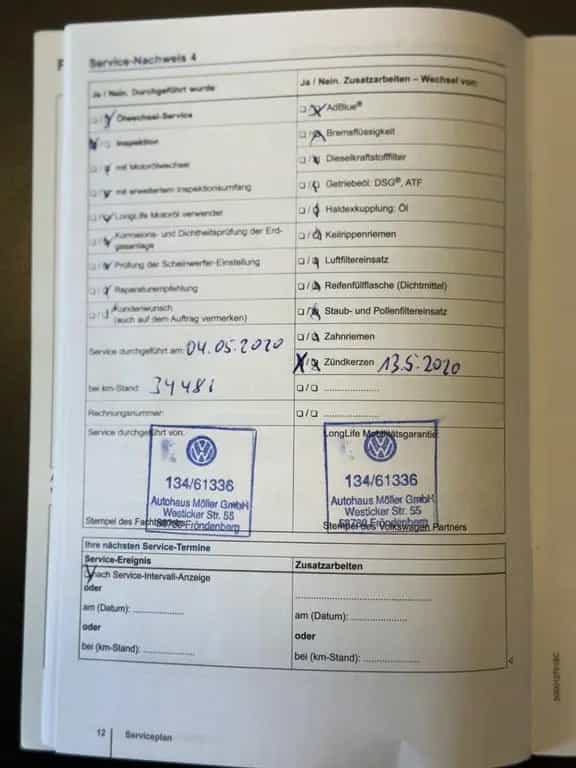 Service-Nachweis 4
Ja / Nein. Durchgeführt wurde
Ölwechsel-Service
Inspektion
mit Motorölwechsel
mit erweitertem Inspektionsumfang
LongLife Motoröl verwendet
Korrosions- und Dichtheitsprüfung der Erd-
gasanlage
Prüfung der Scheinwerfer-Einstellung
Reparaturempfehlung
Kundenwunsch
(auch auf dem Auftrag vermerken)
Service durchgeführt am: 04.05.2020
bei km-Stand: 34481
Rechnungsnummer:
Service durchgeführt von:
134/61336
Autohaus Möller GmbH
Westicker Str. 55
58730 Fröndenberg
Stempel des
Ja / Nein. Zusatzarbeiten – Wechsel von:
AdBlue®
Bremsflüssigkeit
Dieselkraftstofffilter
Getriebeöl: DSG®, ATF
Haldexkupplung: Öl
Keilrippenriemen
Luftfiltereinsatz
Reifenfüllflasche (Dichtmittel)
Staub- und Pollenfiltereinsatz
Zahnriemen
Zündkerzen 13.5.2020
LongLife Mobilitätsgarantie:
134/61336
Autohaus Möller GmbH
Westicker Str. 55
58730 Fröndenberg
Stempel des Volkswagen Partners
Ihre nächsten Service-Termine
Service-Ereignis
nach Service-Intervall-Anzeige
oder
am (Datum): ....................
oder
bei (km-Stand): ....................
Zusatzarbeiten
am (Datum): ....................
oder
bei (km-Stand): ....................
12 Serviceplan